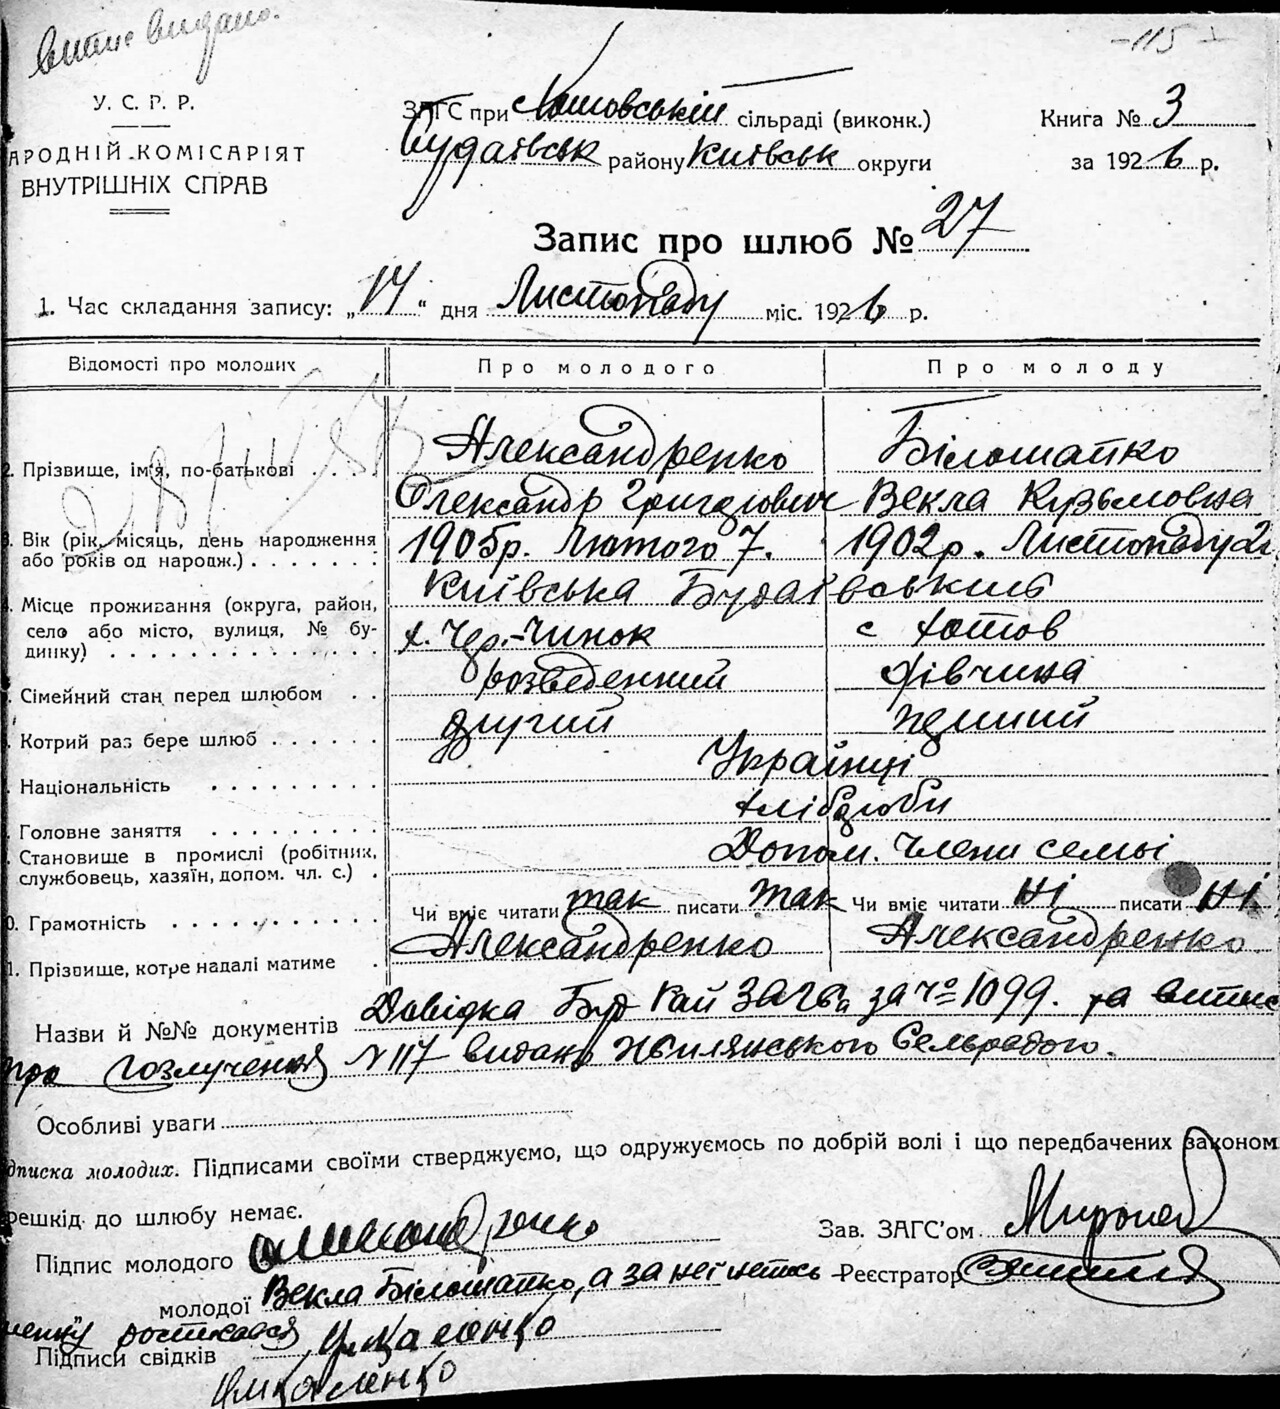 витяг видано.
-115-
У. С. Р. Р.
АРОДНІЙ КОМІСАРІЯТ
ВНУТРІШНІХ СПРАВ
ЗАГС при Хотовській сільраді (виконк.)
Будаївськ району Київськ округи
Книга № 3
за 1926 р.
Запис про шлюб № 27
1. Час складання запису: „14" дня Листопаду міс. 1926 р.
Відомості про молодих Про молодого Про молоду
2. Прізвище, ім'я, по-батькові
Александренко Білошапко
Олександр Григорович Векла Кузьмовна
3. Вік (рік, місяць, день народження або років од народж.)
1905р. Лютого 7. 1902р. Листопаду 2
4. Місце проживання (округа, район, село або місто, вулиця, № будинку)
Київська Будаївський
х. Чер.-Чинок с Хотов
Сімейний стан перед шлюбом розведенний дівчина
Котрий раз бере шлюб другий перший
Національність Українці
Головне заняття хлібороби
Становище в промислі (робітник, службовець, хазяїн, допом. чл. с.) Допом. члени семьі
0. Грамотність Чи вміє читати так писати так Чи вміє читати ні писати ні
1. Прізвище, котре надалі матиме Александренко Александренко
Назви й №№ документів Довідка Буд Рай ЗАГСа за № 1099. та витяг
про розлучення № 117 видан Сельрадою.
Особливі уваги
дписка молодих. Підписами своїми стверджуємо, що одружуємось по добрій волі і що передбачених законом
решкід до шлюбу немає.
Зав. ЗАГС'ом
Підпис молодого
Реєстратор
молодої Векла Білошапко, а за неї
ростисався
Підписи свідків